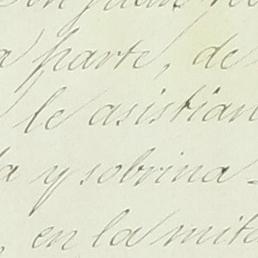 a parte, de
le asistian
a y sobrina
en la mita